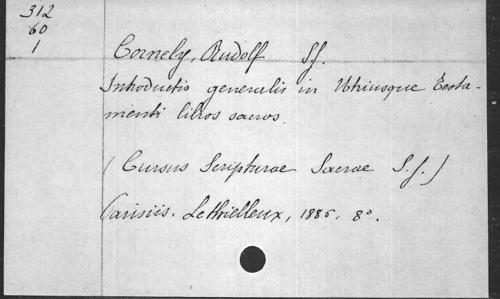 312
60
1
Cornely, Rudolf Sj.
Introductio generalis in Utriusque Testa-
menti libros sacros.
(Cursus Scripturae Sacrae S.j.)
Parisiis. Lethielleux, 1885, 8º.